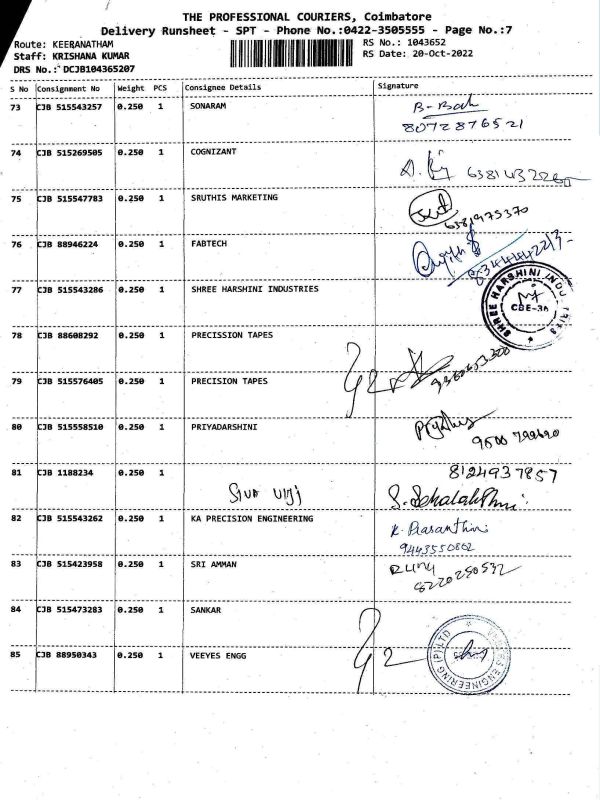 THE PROFESSIONAL COURIERS, Coimbatore
Delivery Runsheet - SPT - Phone No.:0422-3505555 - Page No.:7
Route: KEERANATHAM
Staff: KRISHANA KUMAR
DRS No.: DCJB104365207
RS No.: 1043652
RS Date: 20-Oct-2022
S No Consignment No Weight PCS Consignee Details Signature
73 CJB 515543257 0.250 1 SONARAM
8072876521
74 CJB 515269505 0.250 1 COGNIZANT
75 CJB 515547783 0.250 1 SRUTHIS MARKETING
6381975370
76 CJB 88946224 0.250 1 FABTECH
77 CJB 515543286 0.250 1 SHREE HARSHINI INDUSTRIES
SHREE HARSHINI INDUSTRIES
CBE-36
78 CJB 88608292 0.250 1 PRECISSION TAPES
79 CJB 515576405 0.250 1 PRECISION TAPES
80 CJB 515558510 0.250 1 PRIYADARSHINI
81 CJB 1188234 0.250 1
8124937857
82 CJB 515543262 0.250 1 KA PRECISION ENGINEERING
K. Prasanthini
9443550862
83 CJB 515423958 0.250 1 SRI AMMAN
8220250532
84 CJB 515473283 0.250 1 SANKAR
85 CJB 88950343 0.250 1 VEEYES ENGG